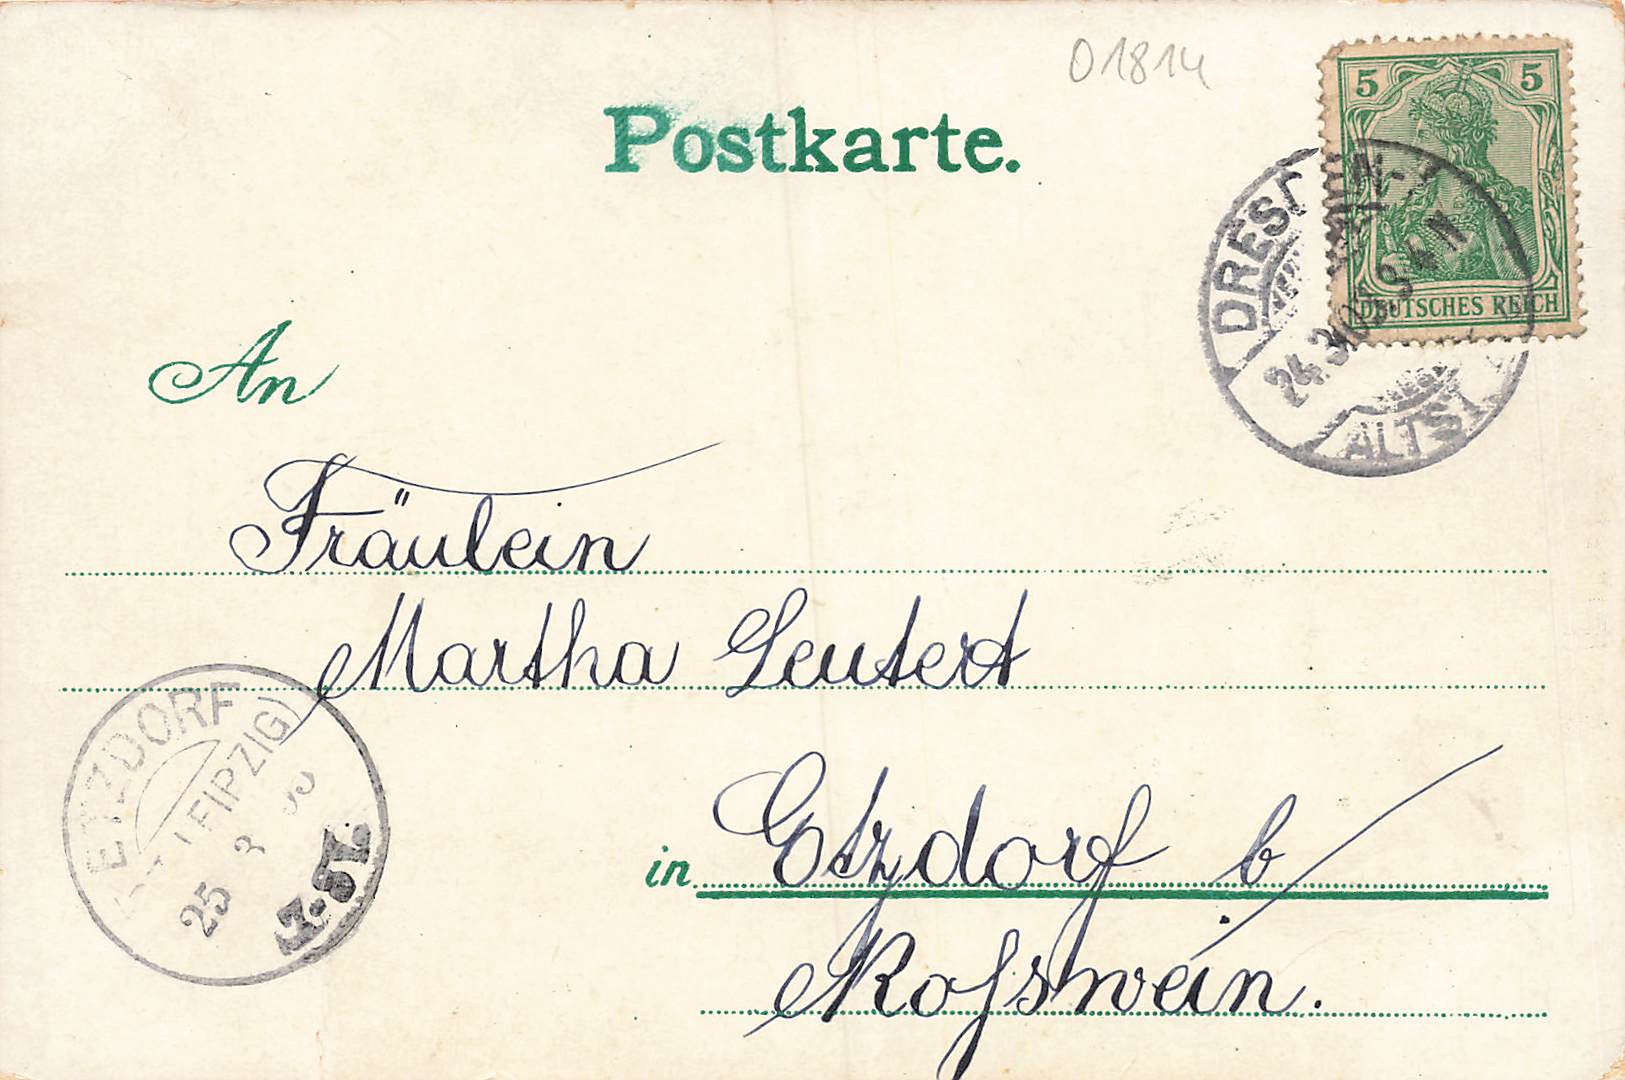 01814
Postkarte.
5 5
DEUTSCHES REICH
DRESDEN-
24.3.03. 3-4 N
ALTST
An
Fräulein
Martha Leutert
in Etzdorf b/
Roſswein.
ETZDORF
LEIPZIG)
25 3 03
7-8V.